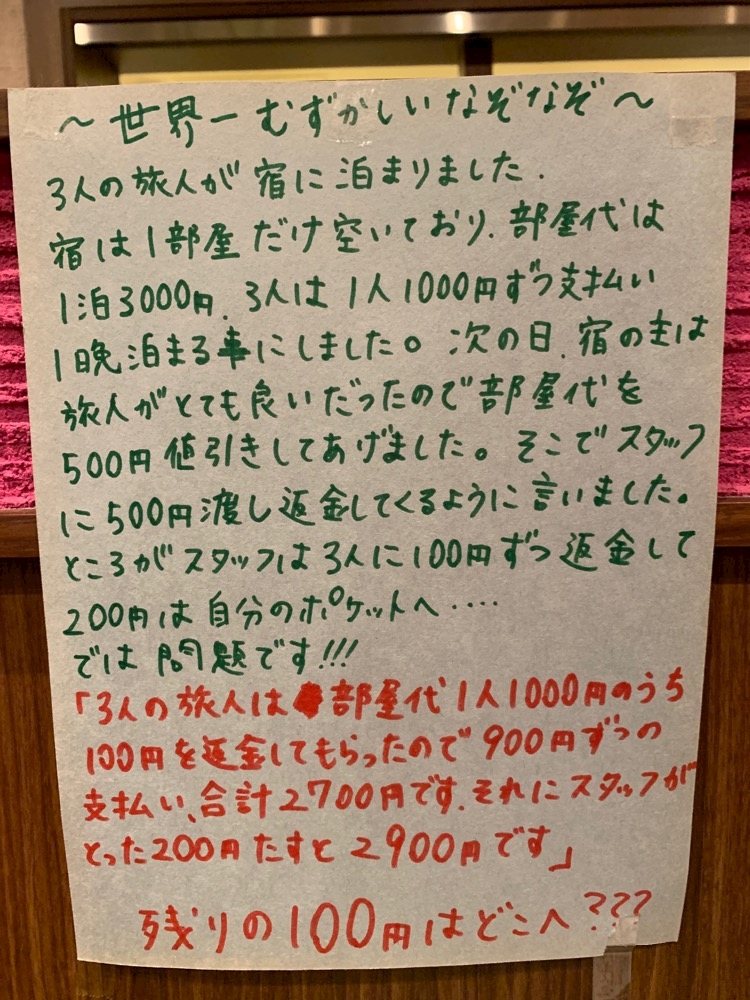 ～世界一むずかしいなぞなぞ～
3人の旅人が宿に泊まりました.
宿は1部屋だけ空いており、部屋代は
1泊3000円、3人は1人1000円ずつ支払い
1晩泊まる事にしました。次の日、宿の主は
旅人がとても良いだったので部屋代を
500円値引きしてあげました。そこでスタッフ
に500円渡し返金してくるように言いました。
ところがスタッフは3人に100円ずつ返金して
200円は自分のポケットへ‥‥
では問題です!!!
「3人の旅人は部屋代1人1000円のうち
100円を返金してもらったので900円ずつの
支払い、合計2700円です、それにスタッフが
とった200円たすと2900円です」
残りの100円はどこへ???